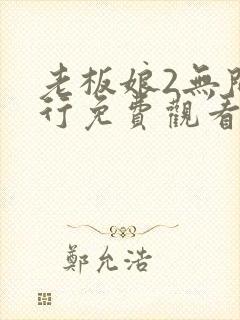 老板娘2無
行免費觀看
鄭允浩